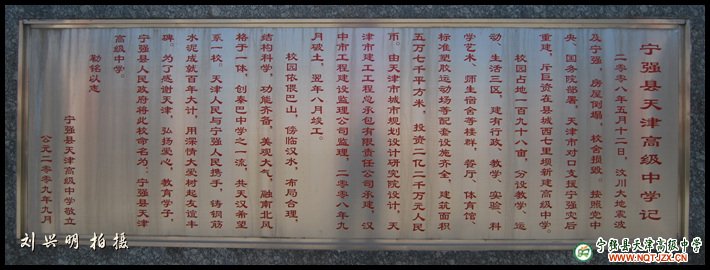 宁强县天津高级中学记
二零零八年五月十二日，汶川大地震波
及宁强，房屋倒塌，校舍损毁。按照党中
央、国务院部署，天津市对口支援宁强灾后
重建，斥巨资在县城西七里坝新建高级中学。
校园占地一百九十八亩，分设教学、运
动、生活三区，建有行政、教学、实验、科
学艺术、师生宿舍等楼群，餐厅、体育馆、
标准塑胶运动场等配套设施齐全，建筑面积
五万七千平方米，投资一亿二千万元人民
币。由天津市城市规划设计研究院设计，天
津市建工工程总承包有限责任公司承建，汉
中市工程建设监理公司监理，二零零八年九
月破土，翌年八月竣工。
校园依偎巴山，傍临汉水，布局合理，
结构科学，功能齐备，美观大气，融南北风
格于一体，创秦巴中学之一流，共天汉希望
系一校。天津人民与宁强人民携手，铸钢筋
水泥成就百年大计，用深情大爱树起友谊丰
碑。为了感谢天津，弘扬爱心，教育学子，
宁强县人民政府将此校命名为：宁强县天津
高级中学。
勒铭以志
宁强县天津高级中学敬立
公元二零零九年九月
刘兴明 拍摄
宁强县天津高级中学
WWW.NQTJZX.CN